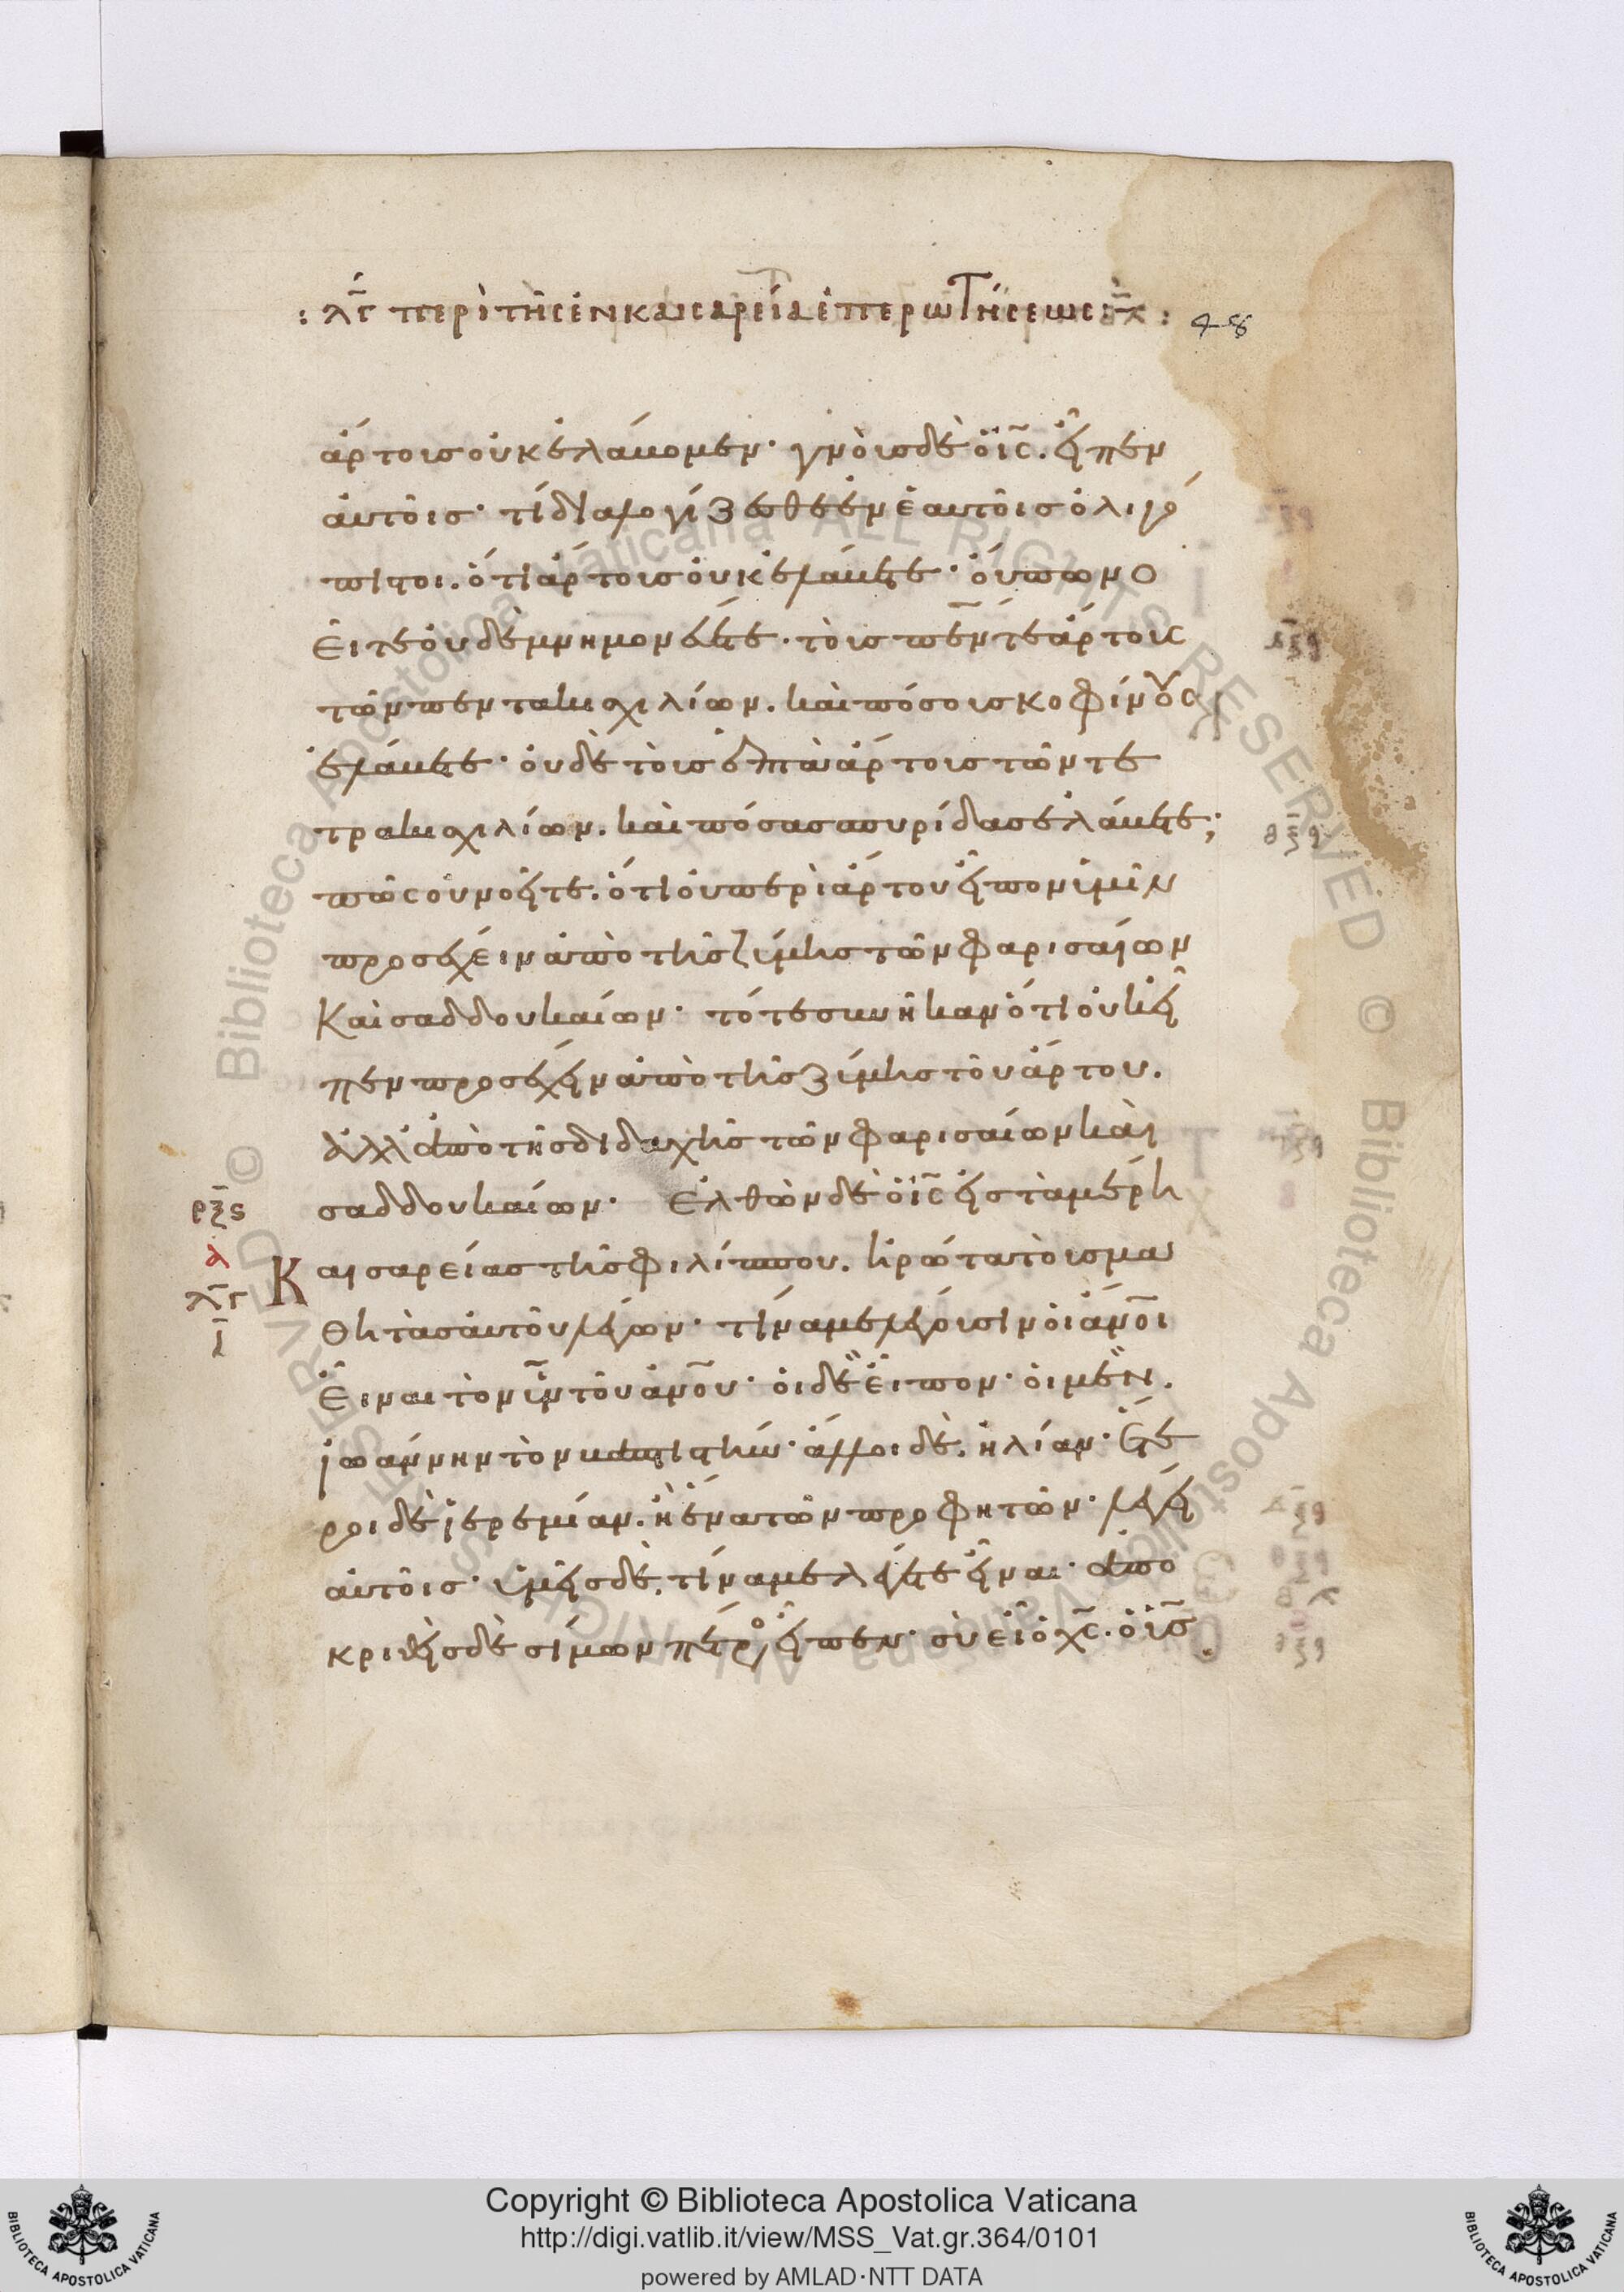 : λγ̅ περὶ τῆς ἐν καισαρεία ἐπερωτήσεως :
48
ἄρτους οὐκ ἐλάβομεν· γνοὺς δὲ ὁ ις̅. εἶπεν
αὐτοῖς· τί διαλογίζεσθε ἐν ἑαυτοῖς ὀλιγό
πιστοι. ὅτι ἄρτους οὐκ ἐλάβετε· οὔπω νο
εῖτε οὐδὲ μνημονεύετε· τοὺς πέντε ἄρτους
τῶν πεντακισχιλίων. καὶ πόσους κοφίνους
ἐλάβετε· οὐδὲ τοὺς ἑπτὰ ἄρτους τῶν τε
τρακισχιλίων. καὶ πόσας σπυρίδας ἐλάβετε;
πῶς οὐ νοεῖτε. ὅτι οὐ περὶ ἄρτου εἶπον ὑμῖν
προσέχειν ἀπὸ τῆς ζύμης τῶν φαρισαίων
καὶ σαδδουκαίων· τότε συνῆκαν ὅτι οὐκ εἶ
πεν προσέχειν ἀπὸ τῆς ζύμης τοῦ ἄρτου.
ἀλλ' ἀπὸ τῆς διδαχῆς τῶν φαρισαίων καὶ
σαδδουκαίων· Ἐλθὼν δὲ ὁ ις̅ εἰς τὰ μέρη
ρξ̅ς
α
λγ̅
ι̅
Καισαρείας τῆς φιλίππου. ἠρώτα τοὺς μα
θητὰς αὐτοῦ λέγων· τίνα με λέγουσιν οἱ ἄνο̅ι
εἶναι τὸν υν̅ τοῦ ἀνο̅υ· οἱ δὲ εἶπον· οἱ μὲν.
ἰωάννην τὸν βαπτιστήν· ἄλλοι δὲ. ἠλίαν· ἕτε
ροι δὲ ἱερεμίαν. ἢ ἕνα τῶν προφητῶν· λέγει
αὐτοῖς· ὑμεῖς δὲ. τίνα με λέγετε εἶναι· ἀπο
κριθεὶς δὲ σίμων πέτρος εἶπεν· σὺ εἶ ὁ χς̅. ὁ υς̅
© Biblioteca Apostolica Vaticana ALL RIGHTS RESERVED
© Biblioteca Apostolica Vaticana ALL RIGHTS RESERVED
Copyright © Biblioteca Apostolica Vaticana
http://digi.vatlib.it/view/MSS_Vat.gr.364/0101
powered by AMLAD·NTT DATA
BIBLIOTECA APOSTOLICA VATICANA
BIBLIOTECA APOSTOLICA VATICANA